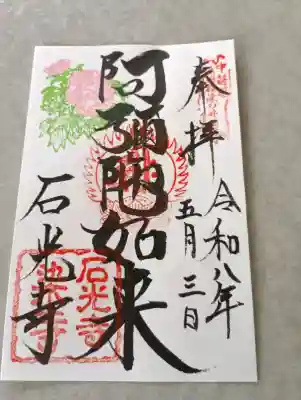 奉拝
令和八年
五月三日
阿彌陀如来
石光寺
石光寺